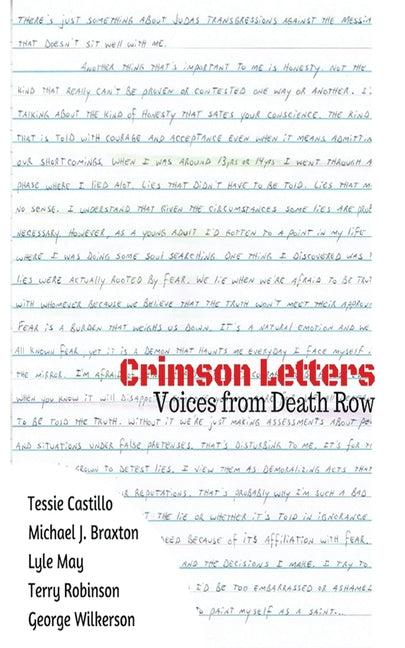 THERE'S JUST SOMETHING ABOUT JUDAS TRANSGRESSIONS AGAINST THE MESSIA
THAT DOESN'T SIT WELL WITH ME.
ANOTHER THING THAT'S IMPORTANT TO ME IS HONESTY. NOT THE
KIND THAT REALLY CAN'T BE PROVEN OR CONTESTED ONE WAY OR ANOTHER. I'
TALKING ABOUT THE KIND OF HONESTY THAT SATES YOUR CONSCIENCE. THE KIND
THAT IS TOLD WITH COURAGE AND ACCEPTANCE EVEN WHEN IT MEANS ADMITTIN
OUR SHORTCOMINGS. WHEN I WAS AROUND 13yrs OR 14yrs I WENT THROUGH A
PHASE WHERE I LIED ALOT. LIES THAT DIDN'T HAVE TO BE TOLD. LIES THAT M
NO SENSE. I UNDERSTAND THAT GIVEN THE CIRCUMSTANCES SOME LIES ARE
NECESSARY. HOWEVER, AS A YOUNG ADULT I'D GOTTEN TO A POINT IN MY LIFE
WHERE I WAS DOING SOME SOUL SEARCHING. ONE THING I DISCOVERED WAS
LIES WERE ACTUALLY ROOTED BY FEAR. WE LIE WHEN WE'RE AFRAID TO BE TRU
WITH WHOMEVER BECAUSE WE BELIEVE THAT THE TRUTH WON'T MEET THEIR APPROV
FEAR IS A BURDEN THAT WEIGHS US DOWN. IT'S A NATURAL EMOTION AND WE
ALL KNOWN FEAR, YET IT IS A DEMON THAT HAUNTS ME EVERYDAY I FACE MYSELF
THE MIRROR. I'M AFRAID
Crimson Letters
WHEN YOU KNOW IT WILL
Voices from Death Row
TO BE TOLD THE TRUTH. WITHOUT IT WE'RE JUST MAKING ASSESSMENTS ABOUT PE
AND SITUATIONS UNDER FALSE PRETENSES. THAT'S DISTURBING TO ME. IT'S FOR
GROWN TO DETEST LIES. I VIEW THEM AS DEMORALIZING ACTS THAT
REPUTATIONS. THAT'S PROBABLY WHY I'M SUCH A BAD
THE LIE OR WHETHER IT'S TOLD IN IGNORANCE
BECAUSE OF ITS AFFILIATION WITH FEAR.
AND THE DECISIONS I MAKE. I TRY TO
I'D BE TOO EMBARRASSED OR ASHAME
TO PAINT MYSELF AS A SAINT...
Tessie Castillo
Michael J. Braxton
Lyle May
Terry Robinson
George Wilkerson